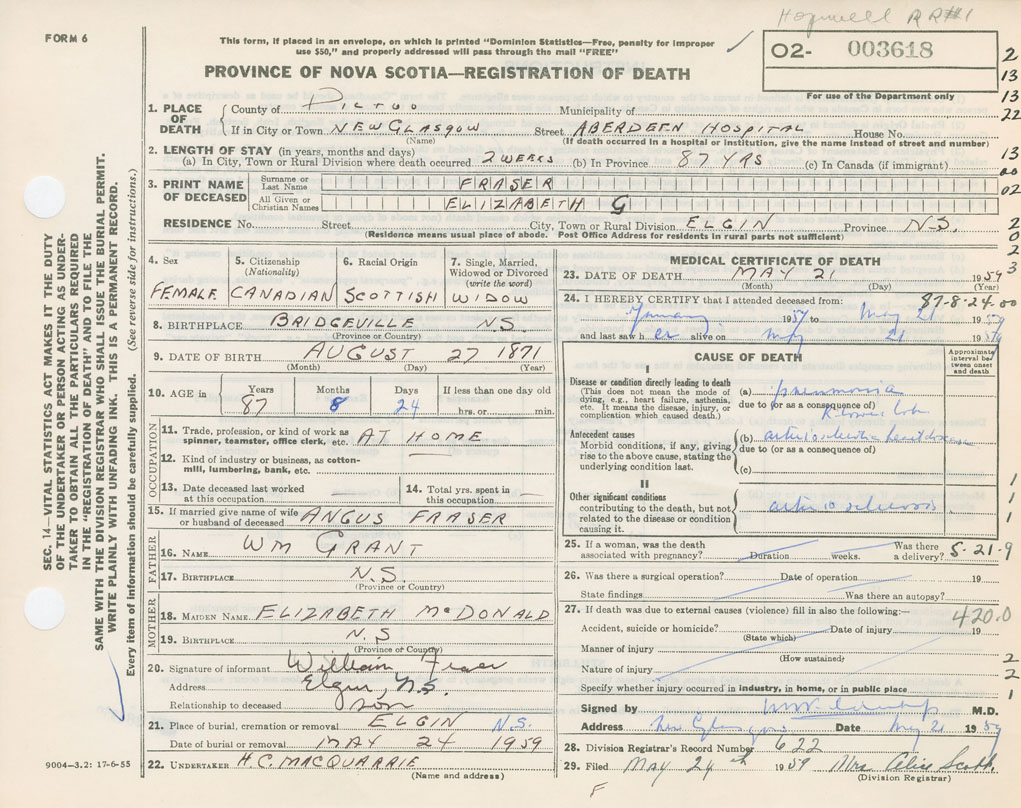 Hopewell RR#1
FORM 6
This form, if placed in an envelope, on which is printed "Dominion Statistics—Free, penalty for improper
use $50," and properly addressed will pass through the mail "FREE"
PROVINCE OF NOVA SCOTIA—REGISTRATION OF DEATH
02- 003618
For use of the Department only
2
13
13
22
13
00
02
2
0
2
3
1. PLACE OF DEATH
County of Pictou Municipality of
If in City or Town NEW GLASGOW Street ABERDEEN HOSPITAL House No.
(Name) (If death occurred in a hospital or institution, give the name instead of street and number)
2. LENGTH OF STAY (in years, months and days)
(a) In City, Town or Rural Division where death occurred 2 WEEKS (b) In Province 87 YRS (c) In Canada (if immigrant)
3. PRINT NAME OF DECEASED
Surname or Last Name FRASER
All Given or Christian Names ELIZABETH G
RESIDENCE No. Street City, Town or Rural Division ELGIN Province N.S.
(Residence means usual place of abode. Post Office Address for residents in rural parts not sufficient)
4. Sex FEMALE
5. Citizenship (Nationality) CANADIAN
6. Racial Origin SCOTTISH
7. Single, Married, Widowed or Divorced (write the word) WIDOW
8. BIRTHPLACE BRIDGEVILLE N.S.
(Province or Country)
9. DATE OF BIRTH AUGUST 27 1871
(Month) (Day) (Year)
10. AGE in Years 87 Months 8 Days 24 If less than one day old hrs. or min.
OCCUPATION
11. Trade, profession, or kind of work as spinner, teamster, office clerk, etc. AT HOME
12. Kind of industry or business, as cotton-mill, lumbering, bank, etc.
13. Date deceased last worked at this occupation
14. Total yrs. spent in this occupation
15. If married give name of wife or husband of deceased ANGUS FRASER
FATHER
16. NAME WM GRANT
17. BIRTHPLACE N.S.
(Province or Country)
MOTHER
18. MAIDEN NAME ELIZABETH McDONALD
19. BIRTHPLACE N.S
(Province or Country)
20. Signature of informant William Fraser
Address Elgin, N.S.
Relationship to deceased Son
21. Place of burial, cremation or removal ELGIN N.S.
Date of burial or removal MAY 24 1959
22. UNDERTAKER H.C. MACQUARRIE
(Name and address)
9004—3.2: 17-6-55
MEDICAL CERTIFICATE OF DEATH
23. DATE OF DEATH MAY 21 1959
(Month) (Day) (Year)
24. I HEREBY CERTIFY that I attended deceased from: 87-8-24.00
January 1957 to May 21 1959
and last saw her alive on May 21 1959
CAUSE OF DEATH
Approximate interval between onset and death
I
Disease or condition directly leading to death
(This does not mean the mode of dying, e.g., heart failure, asthenia, etc. It means the disease, injury, or complication which caused death.)
(a) pneumonia
due to (or as a consequence of)
R lower lobe
Antecedent causes
Morbid conditions, if any, giving rise to the above cause, stating the underlying condition last.
(b) arteriosclerotic heart disease
due to (or as a consequence of)
(c)
II
Other significant conditions
contributing to the death, but not related to the disease or condition causing it.
arteriosclerosis
1
1
1
25. If a woman, was the death associated with pregnancy? Duration weeks. Was there a delivery? 5-21-9
26. Was there a surgical operation? Date of operation 19
State findings Was there an autopsy?
27. If death was due to external causes (violence) fill in also the following:— 420.0
Accident, suicide or homicide? Date of injury 19
(State which)
Manner of injury
(How sustained)
Nature of injury
Specify whether injury occurred in industry, in home, or in public place
2
2
1
Signed by M.D.
Address New Glasgow Date May 21 1959
28. Division Registrar's Record Number 622
29. Filed MAY 24th 1959 Mrs Alice Scott
(Division Registrar)
F
SEC. 14—VITAL STATISTICS ACT MAKES IT THE DUTY
OF THE UNDERTAKER OR PERSON ACTING AS UNDER-
TAKER TO OBTAIN ALL THE PARTICULARS REQUIRED
IN THE "REGISTRATION OF DEATH" AND TO FILE THE
SAME WITH THE DIVISION REGISTRAR WHO SHALL ISSUE THE BURIAL PERMIT.
WRITE PLAINLY WITH UNFADING INK. THIS IS A PERMANENT RECORD.
Every item of information should be carefully supplied. (See reverse side for instructions.)